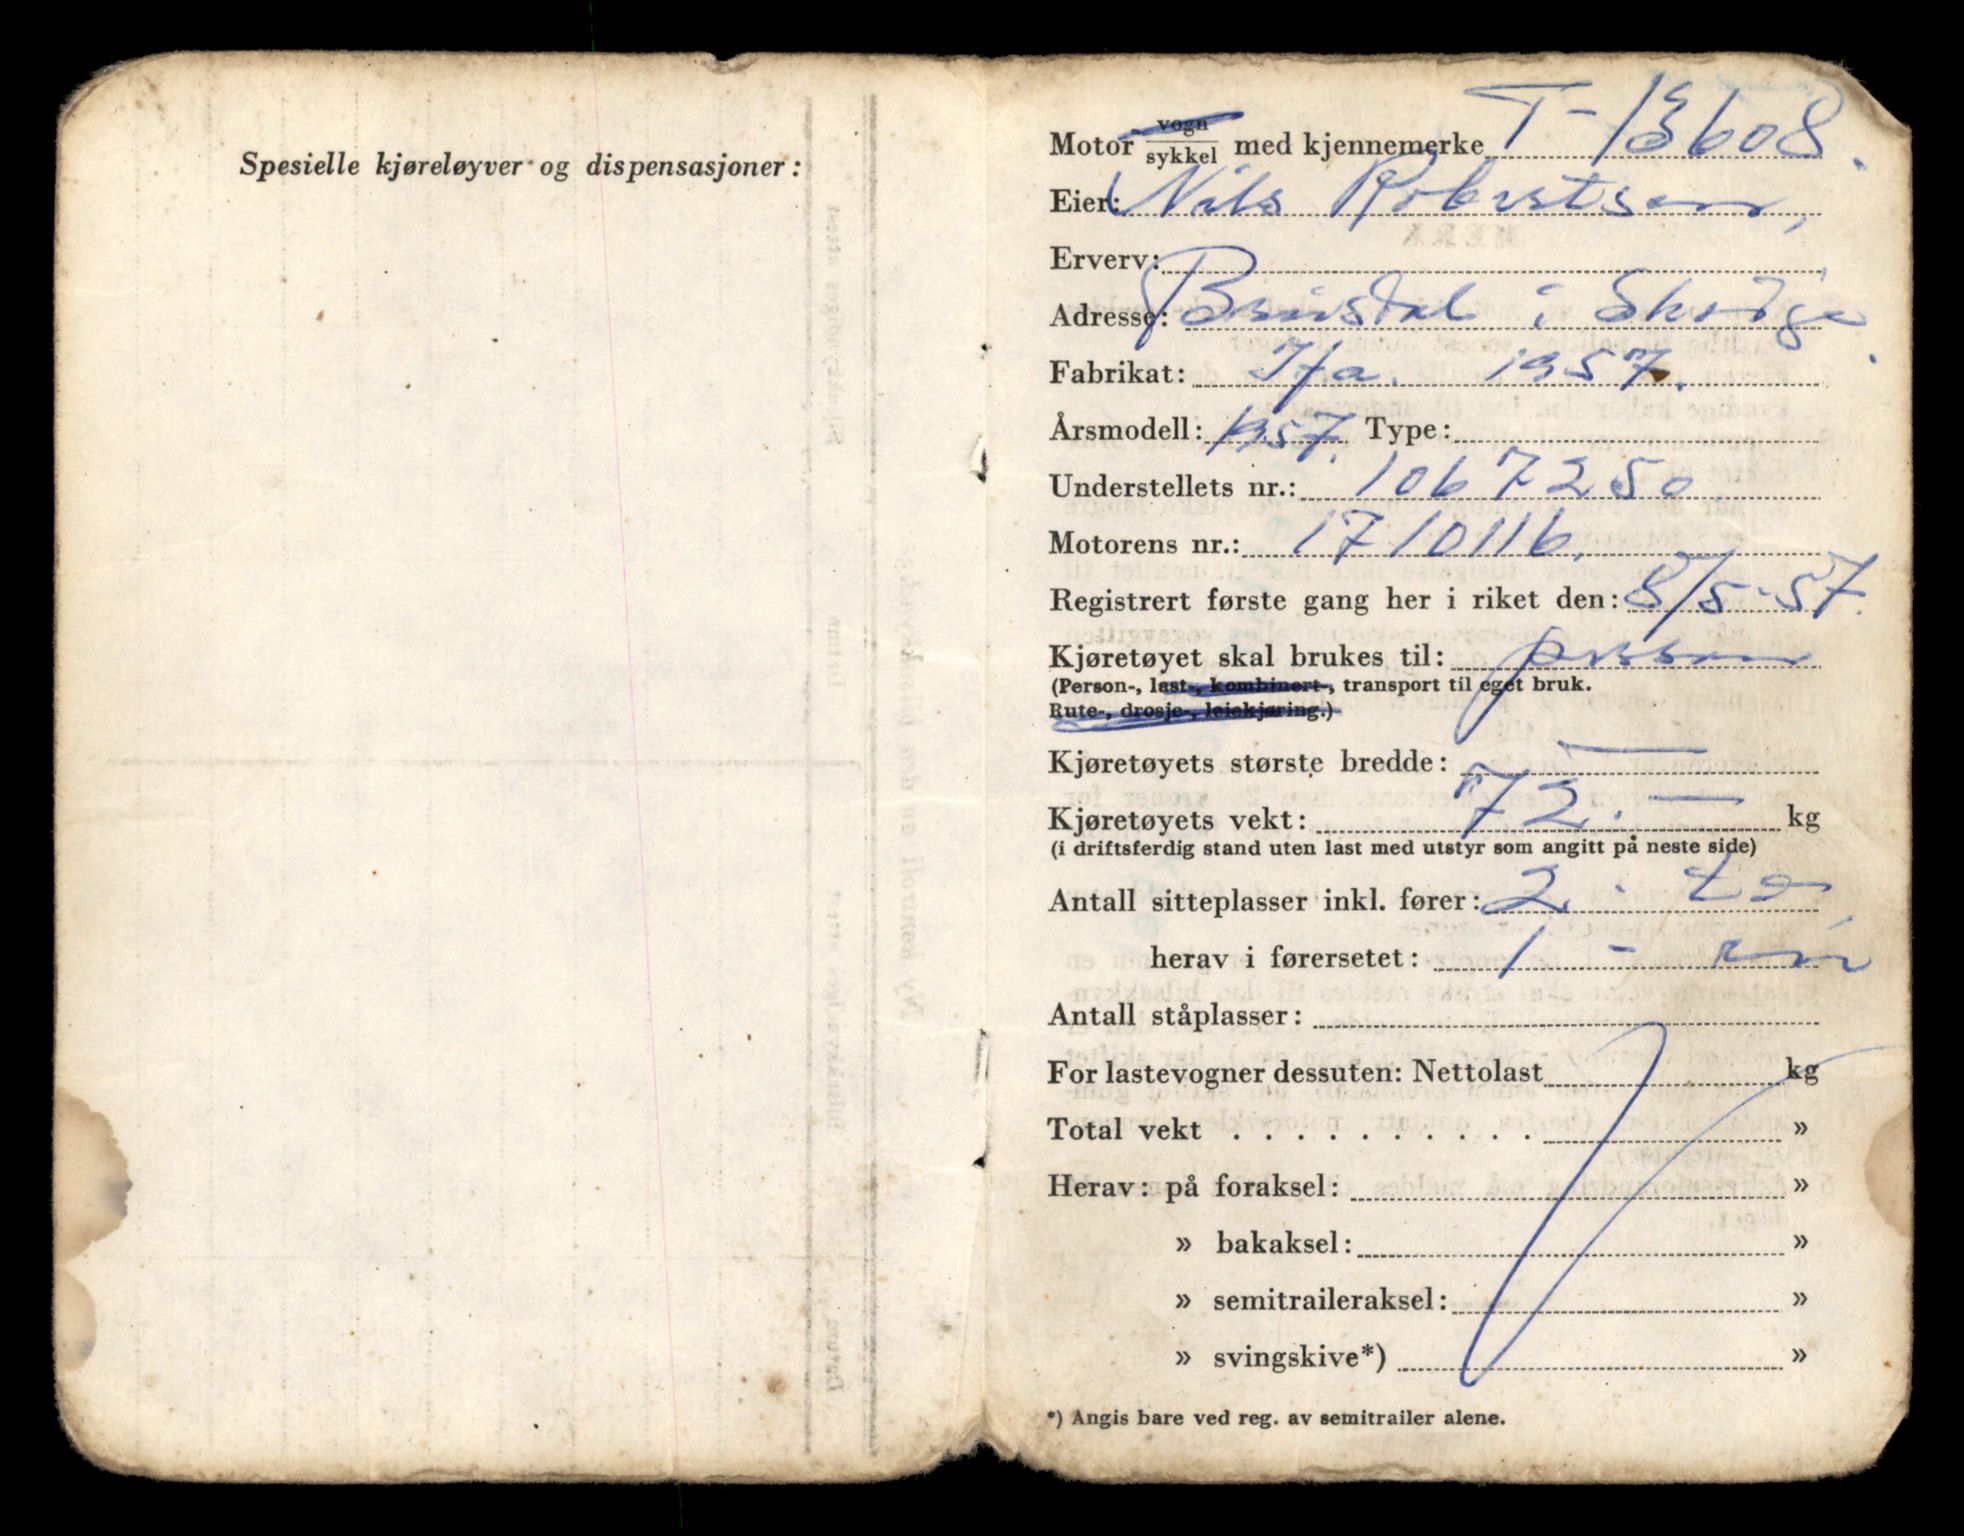 Spesielle kjøreløyver og dispensasjoner:
Motor vogn/sykkel med kjennemerke T-13608.
Eier: Nils Robertsen,
Erverv:
Adresse: i
Fabrikat: Ifa. 1957.
Årsmodell: 1957. Type:
Understellets nr.: 1067250
Motorens nr.: 1710116.
Registrert første gang her i riket den: 8/5-57.
Kjøretøyet skal brukes til: person
(Person-, last-, kombinert-, transport til eget bruk.
Rute-, drosje-, leiekjøring.)
Kjøretøyets største bredde: —
Kjøretøyets vekt: 72.— kg
(i driftsferdig stand uten last med utstyr som angitt på neste side)
Antall sitteplasser inkl. fører: 2 - to
herav i førersetet: 1 - en
Antall ståplasser:
For lastevogner dessuten: Nettolast kg
Total vekt . . . . . . . . . . . »
Herav: på foraksel: »
» bakaksel: »
» semitraileraksel: »
» svingskive*) »
*) Angis bare ved reg. av semitrailer alene.